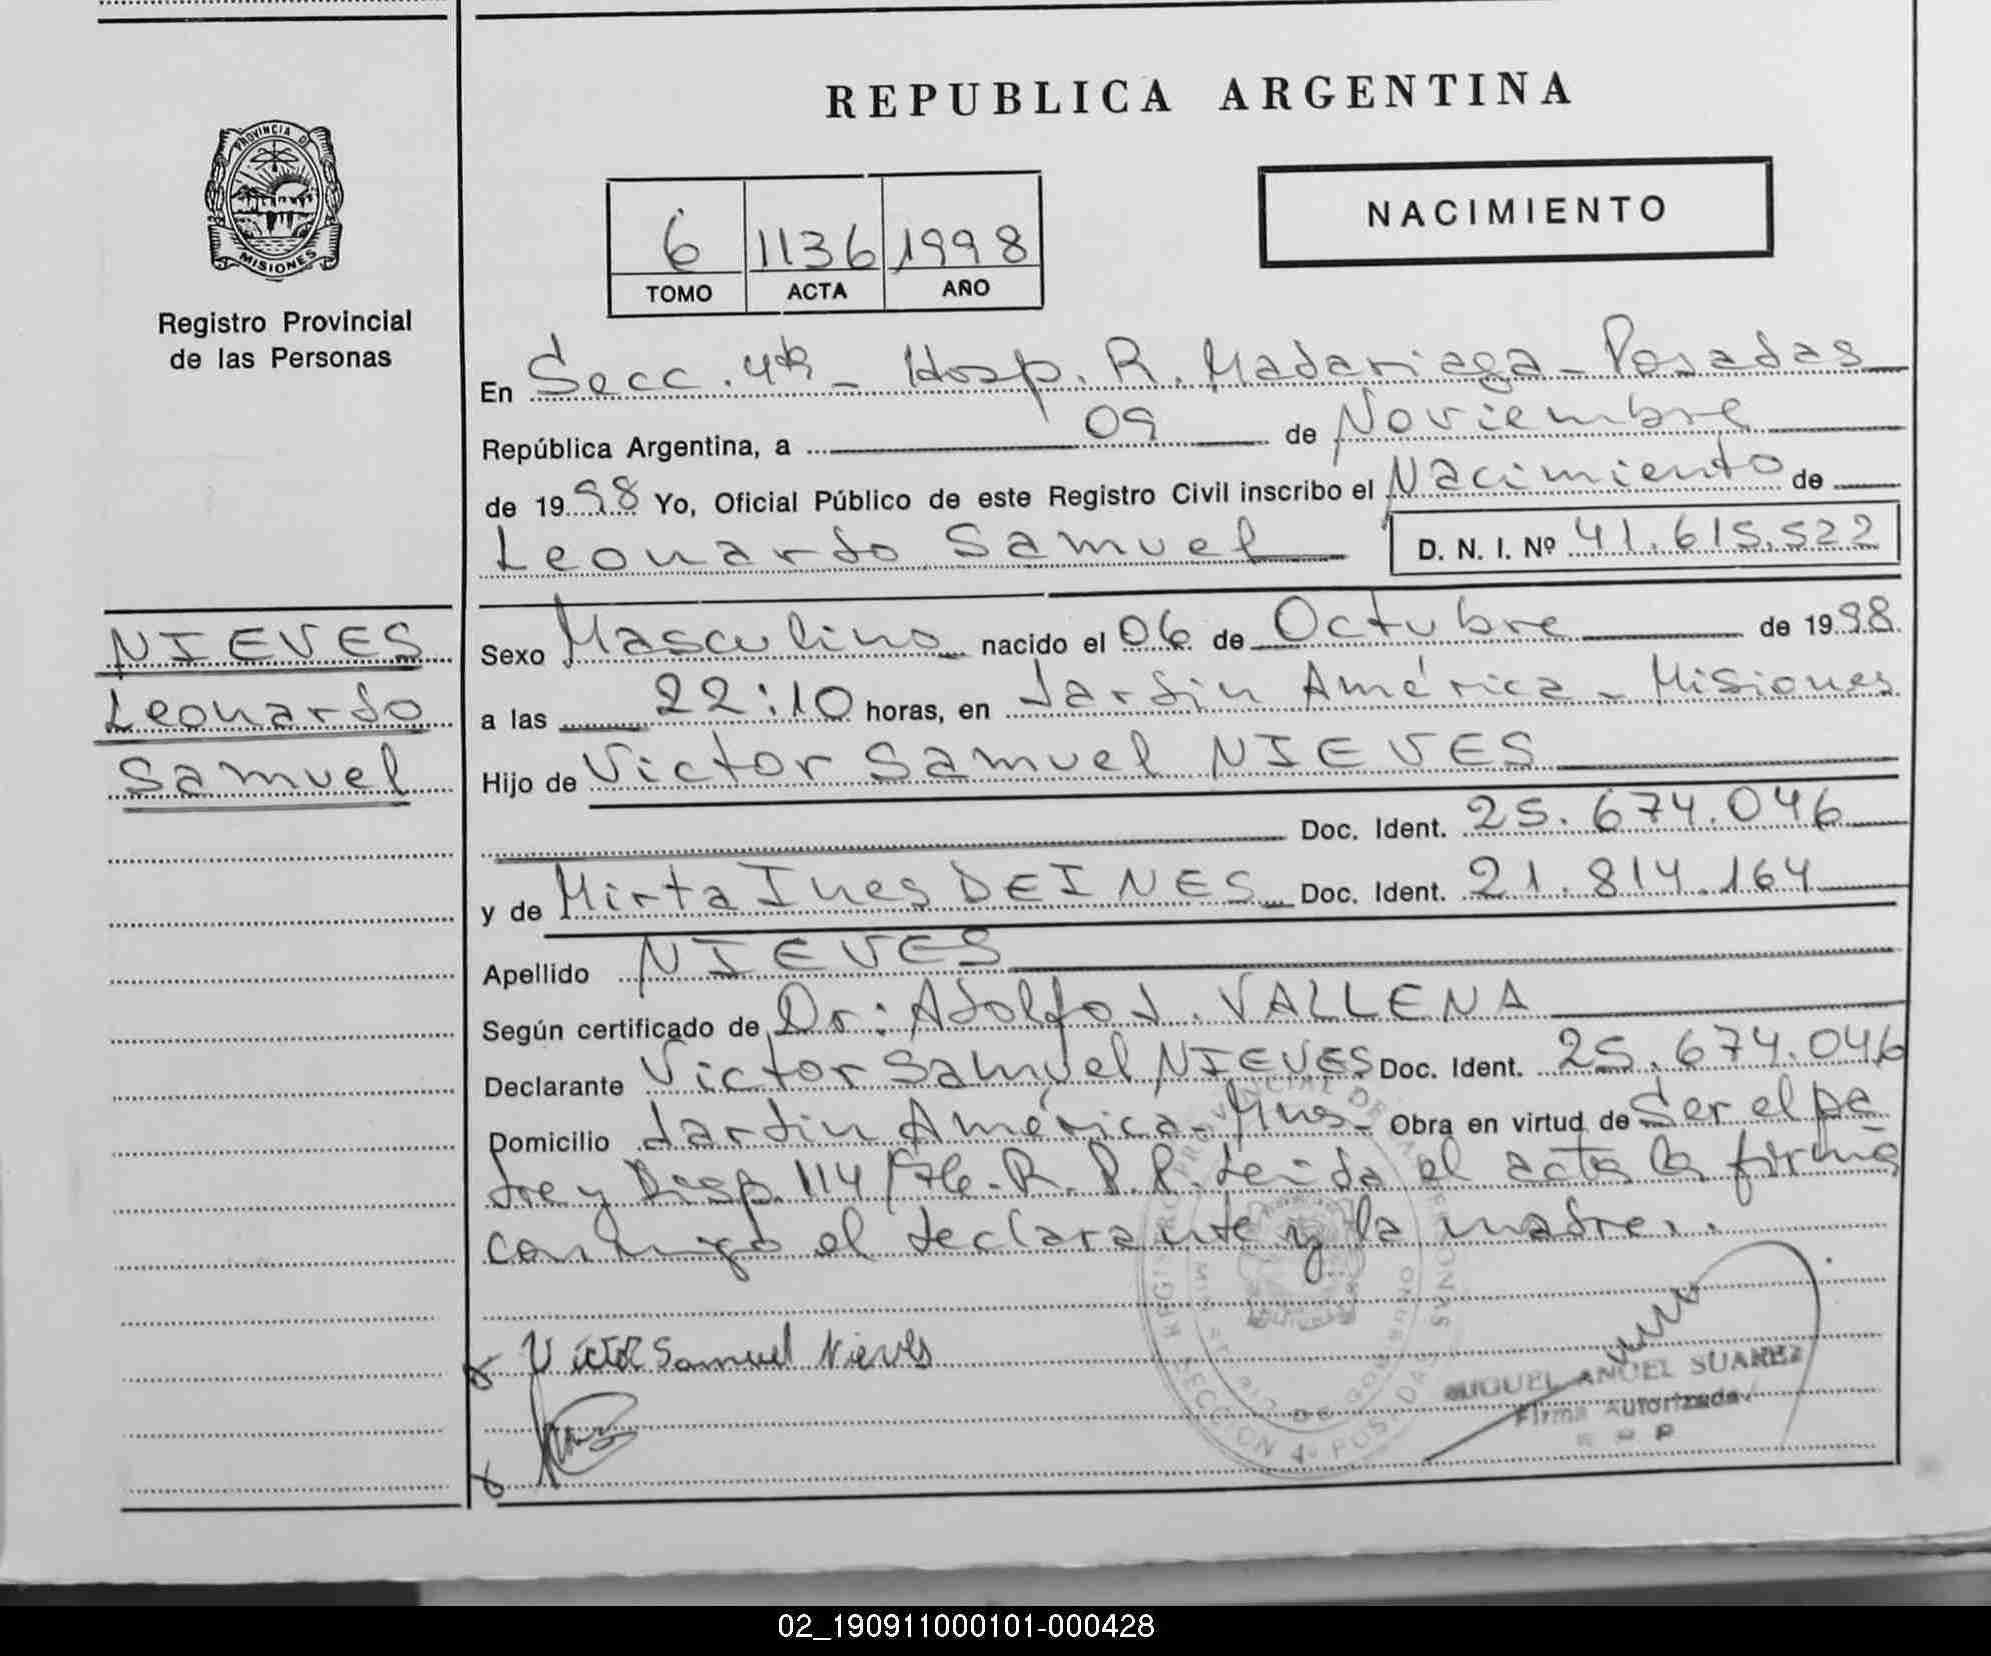 REPUBLICA ARGENTINA
PROVINCIA DE
MISIONES
Registro Provincial
de las Personas
NACIMIENTO
6 1136 1998
TOMO ACTA AÑO
En Secc. 4ta - Hosp. R. Madariaga - Posadas
República Argentina, a 09 de Noviembre
de 1998 Yo, Oficial Público de este Registro Civil inscribo el Nacimiento de
Leonardo Samuel D. N. I. Nº 41.615.522
NIEVES
Leonardo
Samuel
Sexo Masculino nacido el 06 de Octubre de 1998
a las 22:10 horas, en Jardin América - Misiones
Hijo de Victor Samuel NIEVES
Doc. Ident. 25.674.046
y de Mirta Ines DEINES Doc. Ident. 21.814.164
Apellido NIEVES
Según certificado de Dr: Adolfo J. VALLENA
Declarante Victor Samuel NIEVES Doc. Ident. 25.674.046
Domicilio Jardin América - Mnes - Obra en virtud de Ser el pa
dre y Disp. 114/76. R. P. P. Leida el acta la firma
conmigo el declarante y la madre..
Victor Samuel Nieves
MIGUEL ANGEL SUAREZ
Firma Autorizada
R P P
SECCION 4º POSADAS
02_190911000101-000428